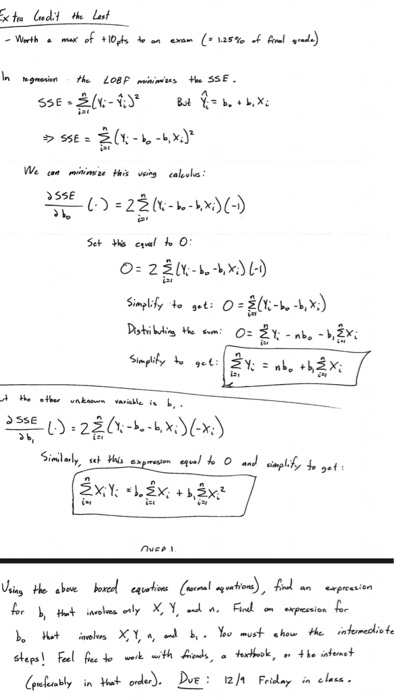 Extra Credit the Last
- Worth a max of +10pts to an exam (= 1.25% of final grade)
In regression the LOBF minimizes the SSE.
SSE = Σ_{i=1}^{n} (Y_i - Ŷ_i)² But Ŷ_i = b_0 + b_1 X_i
⇒ SSE = Σ_{i=1}^{n} (Y_i - b_0 - b_1 X_i)²
We can minimize this using calculus:
∂SSE/∂b_0 (·) = 2 Σ_{i=1}^{n} (Y_i - b_0 - b_1 X_i)(-1)
Set this equal to 0:
0 = 2 Σ_{i=1}^{n} (Y_i - b_0 - b_1 X_i)(-1)
Simplify to get: 0 = Σ_{i=1}^{n} (Y_i - b_0 - b_1 X_i)
Distributing the sum: 0 = Σ_{i=1}^{n} Y_i - nb_0 - b_1 Σ_{i=1}^{n} X_i
Simplify to get: Σ_{i=1}^{n} Y_i = nb_0 + b_1 Σ_{i=1}^{n} X_i
the other unknown variable is b_1.
∂SSE/∂b_1 (·) = 2 Σ_{i=1}^{n} (Y_i - b_0 - b_1 X_i)(-X_i)
Similarly, set this expression equal to 0 and simplify to get:
Σ_{i=1}^{n} X_i Y_i = b_0 Σ_{i=1}^{n} X_i + b_1 Σ_{i=1}^{n} X_i²
Using the above boxed equations (normal equations), find an expression
for b_1 that involves only X, Y, and n. Find an expression for
b_0 that involves X, Y, n, and b_1. You must show the intermediate
steps! Feel free to work with friends, a textbook, or the internet
(preferably in that order). DUE: 12/9 Friday in class.